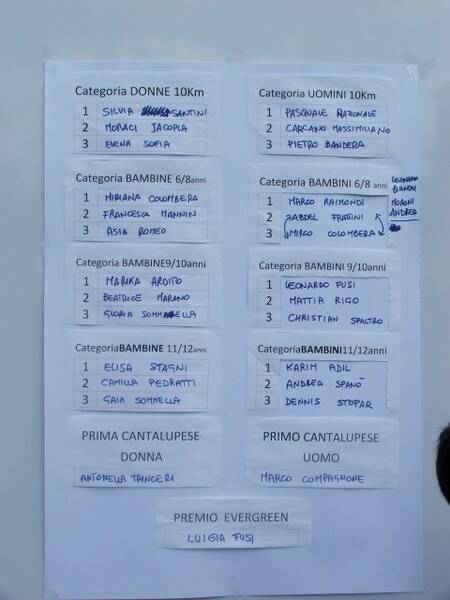 Categoria DONNE 10Km
1 SILVIA SANTINI
2 MORACI JACOPLA
3 ELENA SOFIA
Categoria UOMINI 10Km
1 PASQUALE RAZIONALE
2 CARCANO MASSIMILIANO
3 PIETRO BANDERA
Categoria BAMBINE 6/8anni
1 MIRIANA COLOMBERA
2 FRANCESCA MANNIN
3 ASIA ROMEO
Categoria BAMBINI 6/8 anni
1 MARCO RAIMONDI
2 ABDEL FRATINI
3 MIRCO COLOMBERA
LEONARDO
MORONI
ANDREA
Categoria BAMBINE9/10anni
1 MARIKA ARDITO
2 BEATRICE MARANO
3 GLORIA SOMMELLA
Categoria BAMBINI 9/10anni
1 LEONARDO FUSI
2 MATTIA RIGO
3 CHRISTIAN SPALTRO
CategoriaBAMBINE 11/12anni
1 ELISA STAGNI
2 CAMILLA PEDRATTI
3 GAIA SOMMELLA
CategoriaBAMBINI11/12anni
1 KARIM ADIL
2 ANDREA SPANÒ
3 DENNIS STOPAR
PRIMA CANTALUPESE
DONNA
ANTONELLA TRINCERI
PRIMO CANTALUPESE
UOMO
MARCO COMPAGNONE
PREMIO EVERGREEN
LUIGIA FUSI